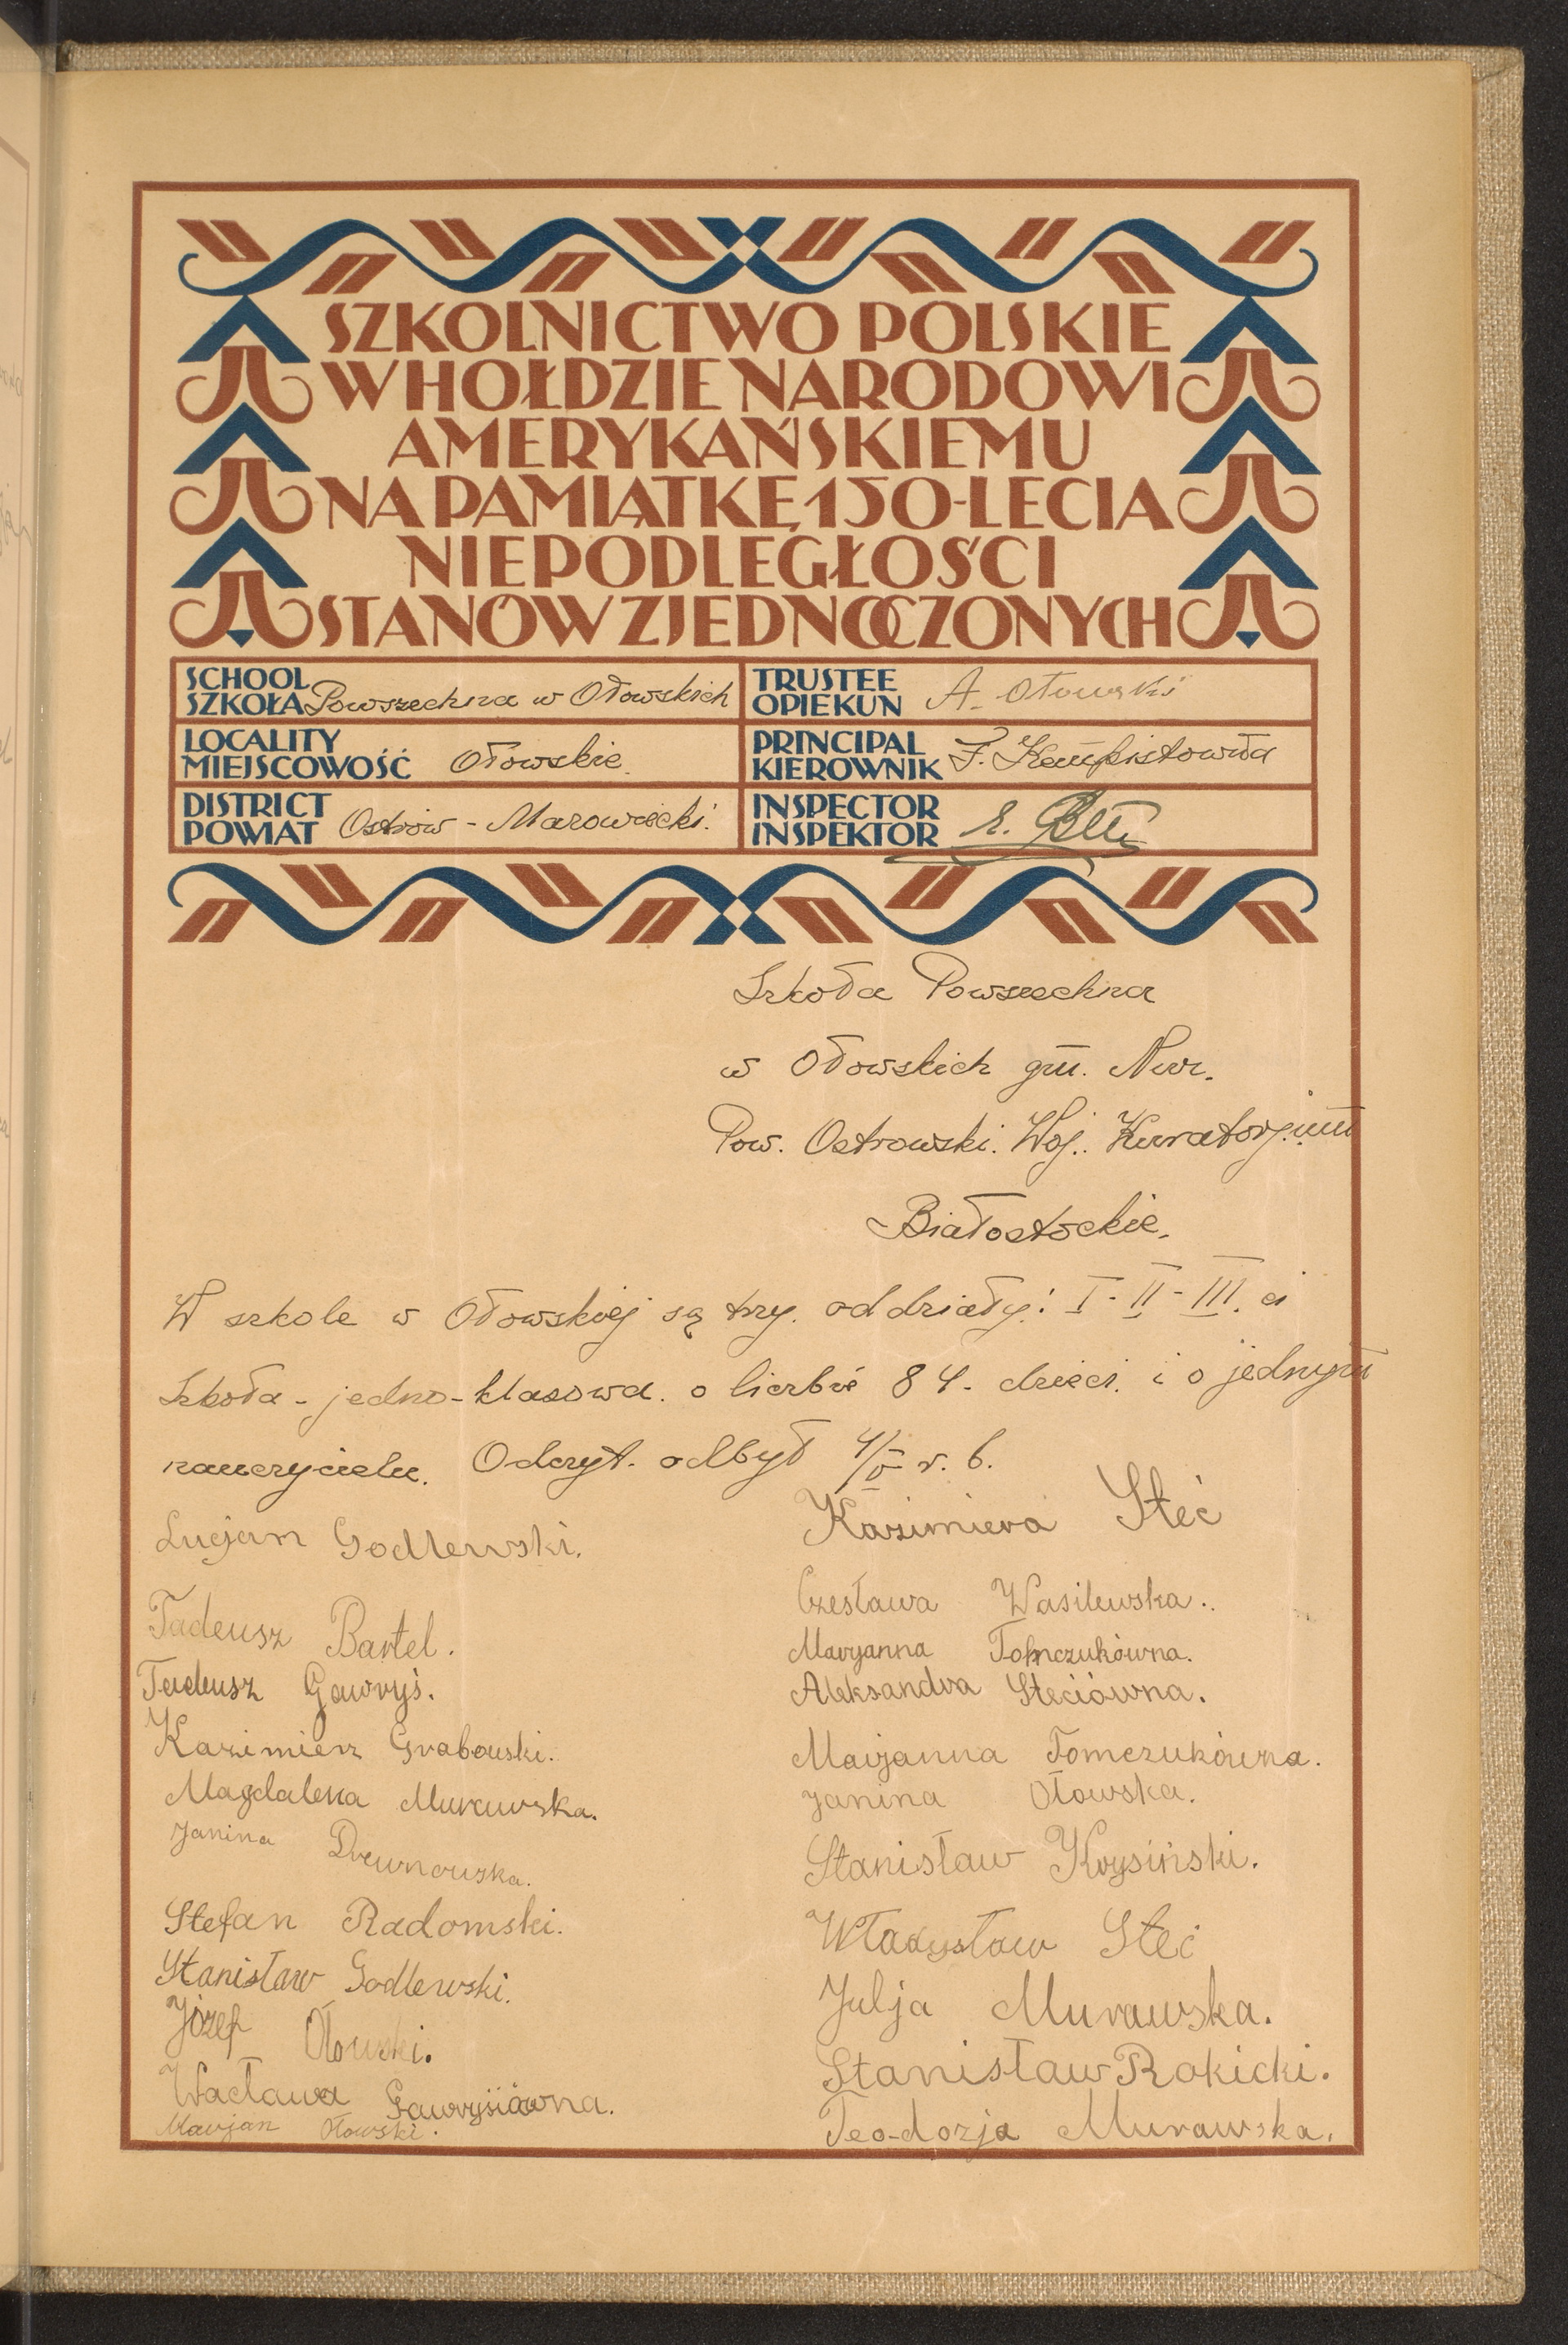 SZKOLNICTWO POLSKIE
W HOŁDZIE NARODOWI
AMERYKAŃSKIEMU
NA PAMIĄTKĘ 150-LECIA
NIEPODLEGŁOŚCI
STANÓW ZJEDNOCZONYCH
SCHOOL
SZKOŁA Powszechna w Ołowskich
TRUSTEE
OPIEKUN A. Ołowski
LOCALITY
MIEJSCOWOŚĆ Ołowskie
PRINCIPAL
KIEROWNIK F. Kempistowna
DISTRICT
POWIAT Ostrów - Mazowiecki.
INSPECTOR
INSPEKTOR
Szkoła Powszechna
w Ołowskich gm. Nur.
Pow. Ostrowski. Woj. Kuratorjum
Białostockie.
W szkole w Ołowskiej są trzy. oddziały: I - II - III. ci
Szkoła - jedno-klasowa. o liczbie 84. dzieci. i o jednym
nauczycielu. Odczyt. odbył 4/V r. b.
Lucjan Godlewski.
Tadeusz Bartel.
Tadeusz Gawryś.
Kazimierz Grabowski.
Magdalena Murawska.
Janina Drewnowska.
Stefan Radomski.
Stanisław Godlewski.
Józef Ołowski.
Wacława Gawrysiówna.
Marjan Ołowski.
Kazimiera Steć
Czesława Wasilewska.
Maryanna Tomczukówna.
Aleksandra Steciówna.
Marjanna Tomczukówna.
Janina Ołowska.
Stanisław Krysiński.
Władysław Steć
Julja Murawska.
Stanisław Rokicki.
Teodozja Murawska.